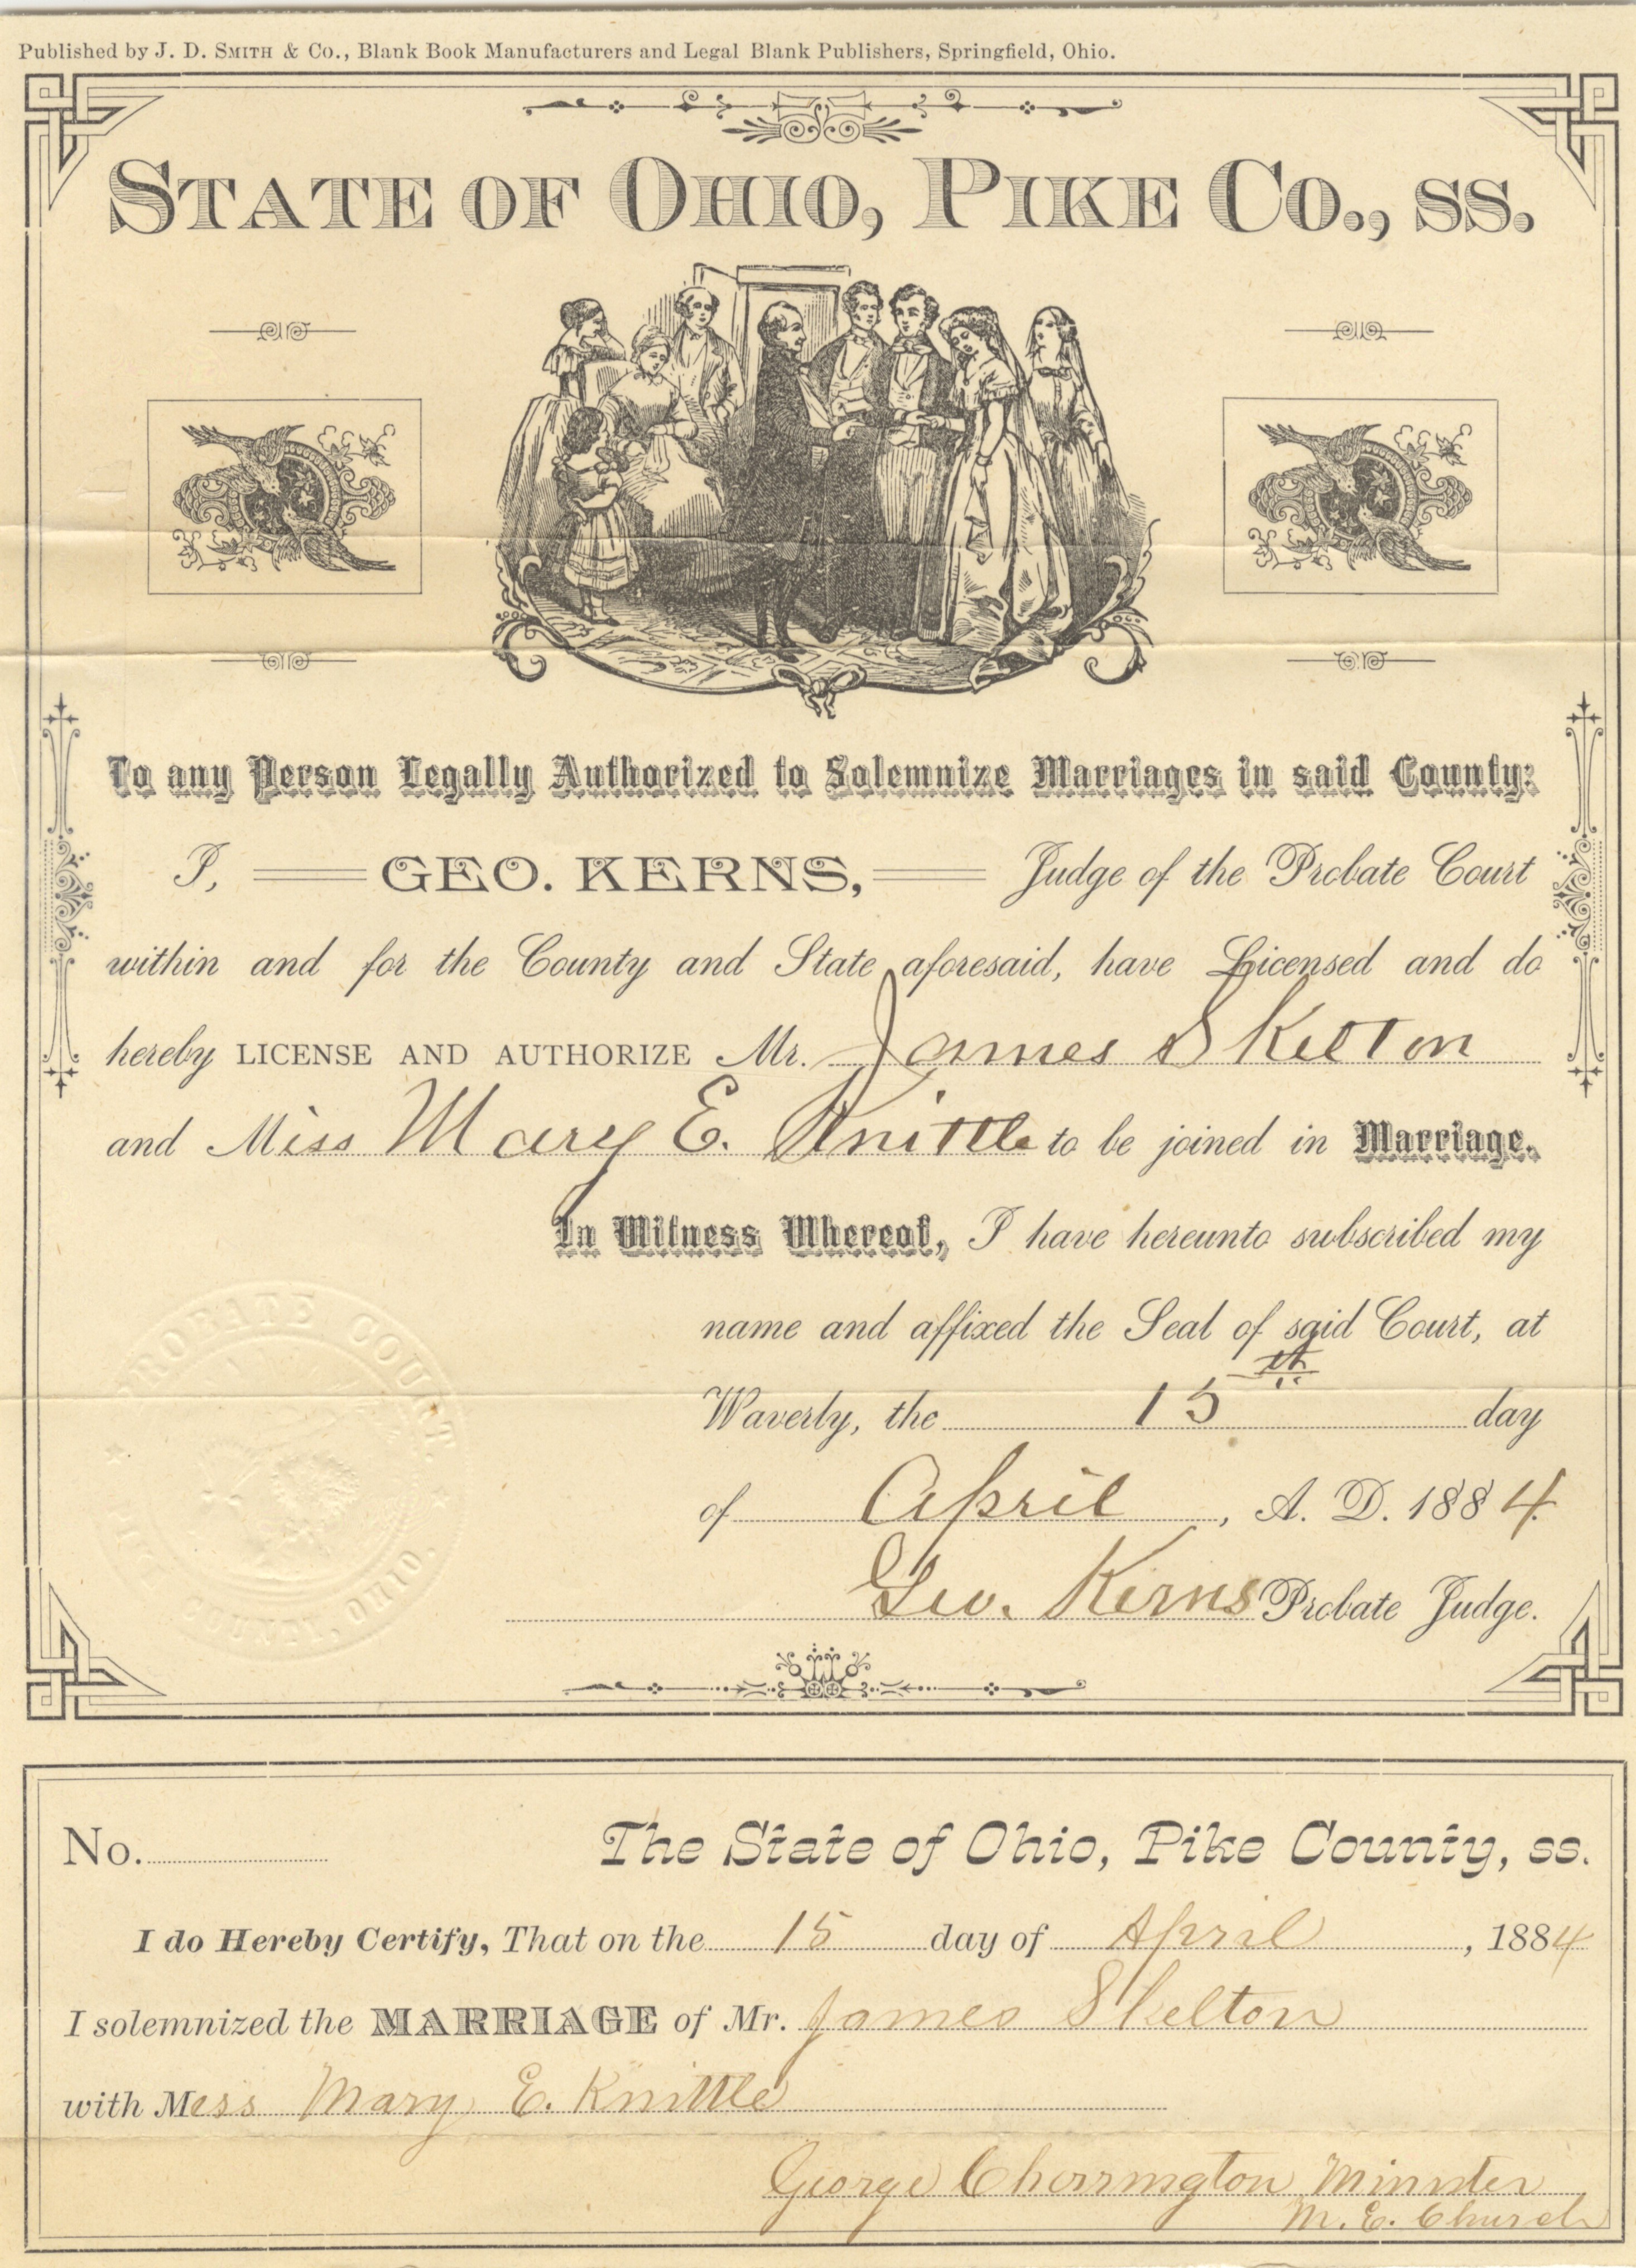 Published by J. D. Smith & Co., Blank Book Manufacturers and Legal Blank Publishers, Springfield, Ohio.
State of Ohio, Pike Co., ss.
To any Person Legally Authorized to Solemnize Marriages in said County:
I, GEO. KERNS, Judge of the Probate Court
within and for the County and State aforesaid, have Licensed and do
hereby LICENSE AND AUTHORIZE Mr. James Skelton
and Miss Mary E. Knittle to be joined in Marriage.
In Witness Whereof, I have hereunto subscribed my
name and affixed the Seal of said Court, at
Waverly, the 15th day
of April, A. D. 1884.
Geo. Kerns Probate Judge.
PROBATE COURT.
COUNTY, OHIO.
No.
The State of Ohio, Pike County, ss.
I do Hereby Certify, That on the 15 day of April, 1884
I solemnized the MARRIAGE of Mr. James Skelton
with Miss Mary E. Knittle
George Cherrington Minister
M. E. Church